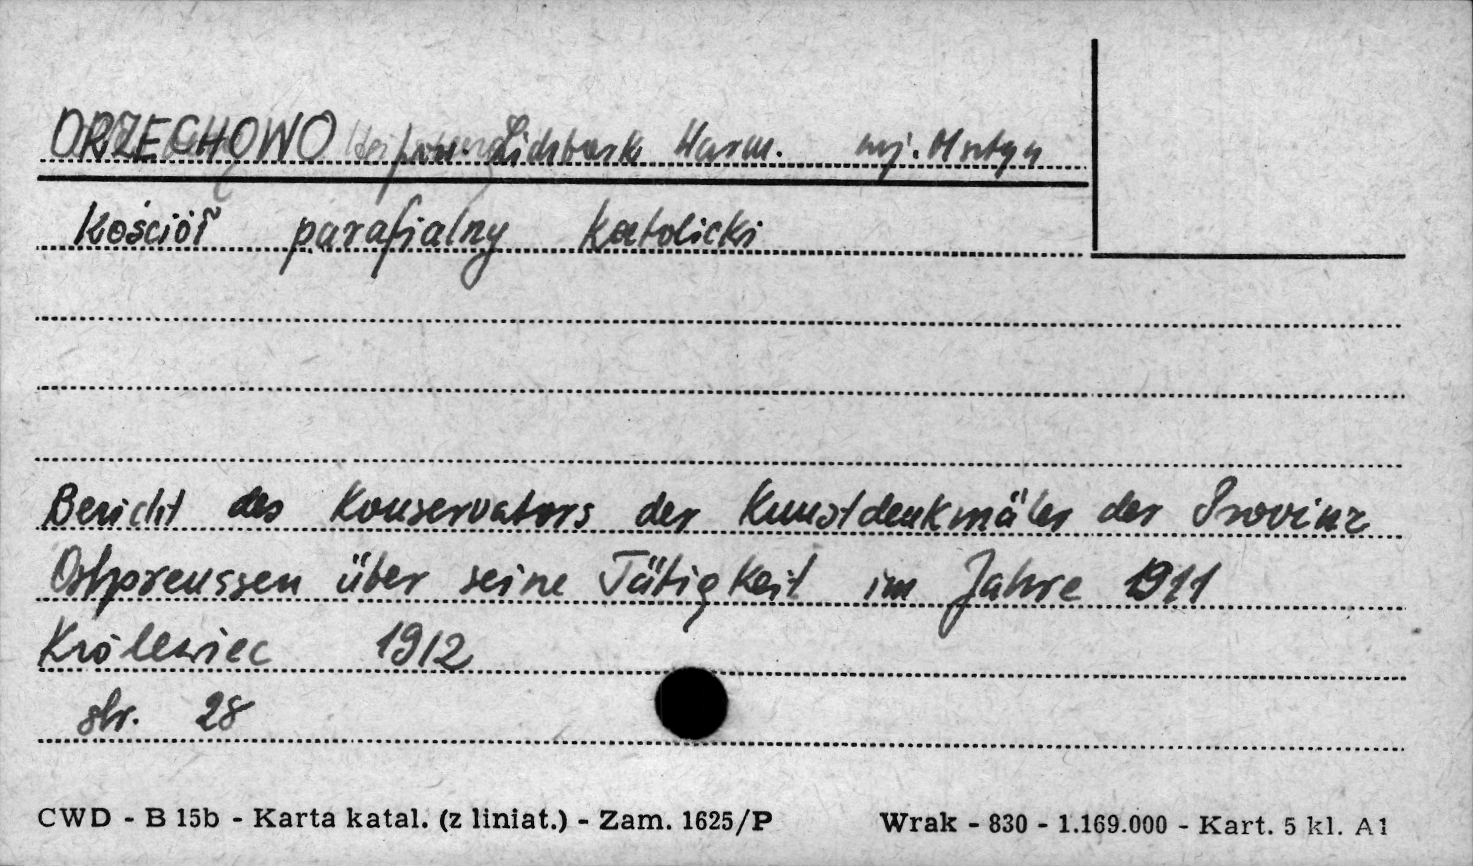 ORZECHOWO pow. Lidzbark Warm. wj. Olsztyn
Kościół parafialny katolicki
Bericht des Konservators der Kunstdenkmäler der Provinz
Ostpreussen über seine Tätigkeit im Jahre 1911
Królewiec 1912
str. 28
CWD - B 15b - Karta katal. (z liniat.) - Zam. 1625/P Wrak - 830 - 1.169.000 - Kart. 5 kl. A1